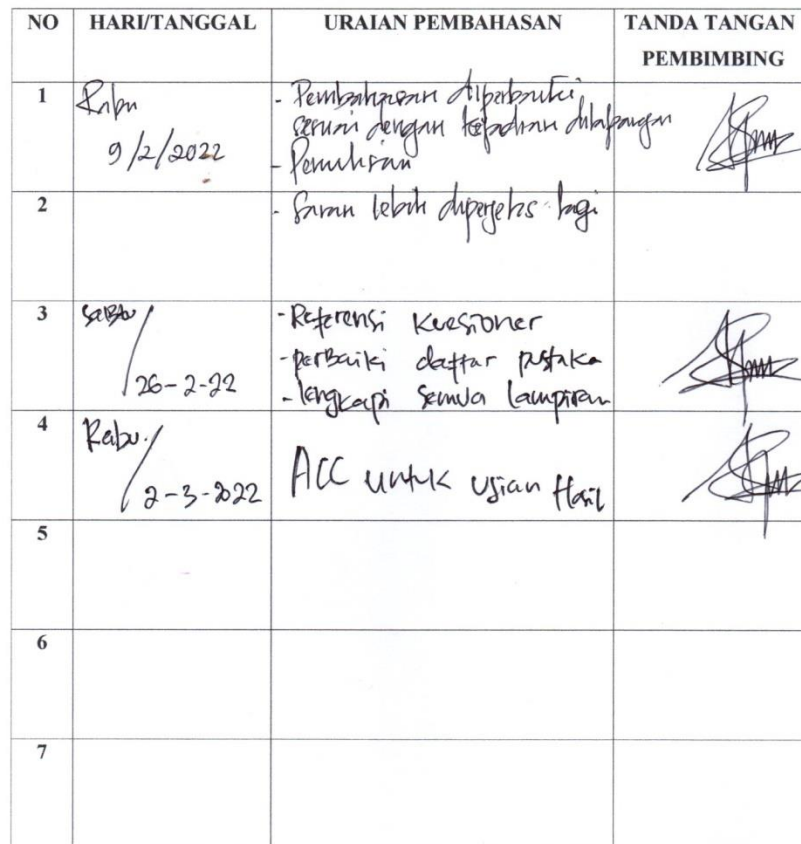 NO HARI/TANGGAL URAIAN PEMBAHASAN TANDA TANGAN
PEMBIMBING
1 Rabu - Pembahasan diperbaiki
sesuai dengan kejadian dilapangan
9/2/2022
- Penulisan
2 - Saran lebih diperjelas lagi
3 Sabtu/ - Referensi Kuesioner
- perbaiki daftar pustaka
26-2-22 - lengkapi semua lampiran
4 Rabu/
2-3-2022 ACC untuk Ujian Hasil
5
6
7